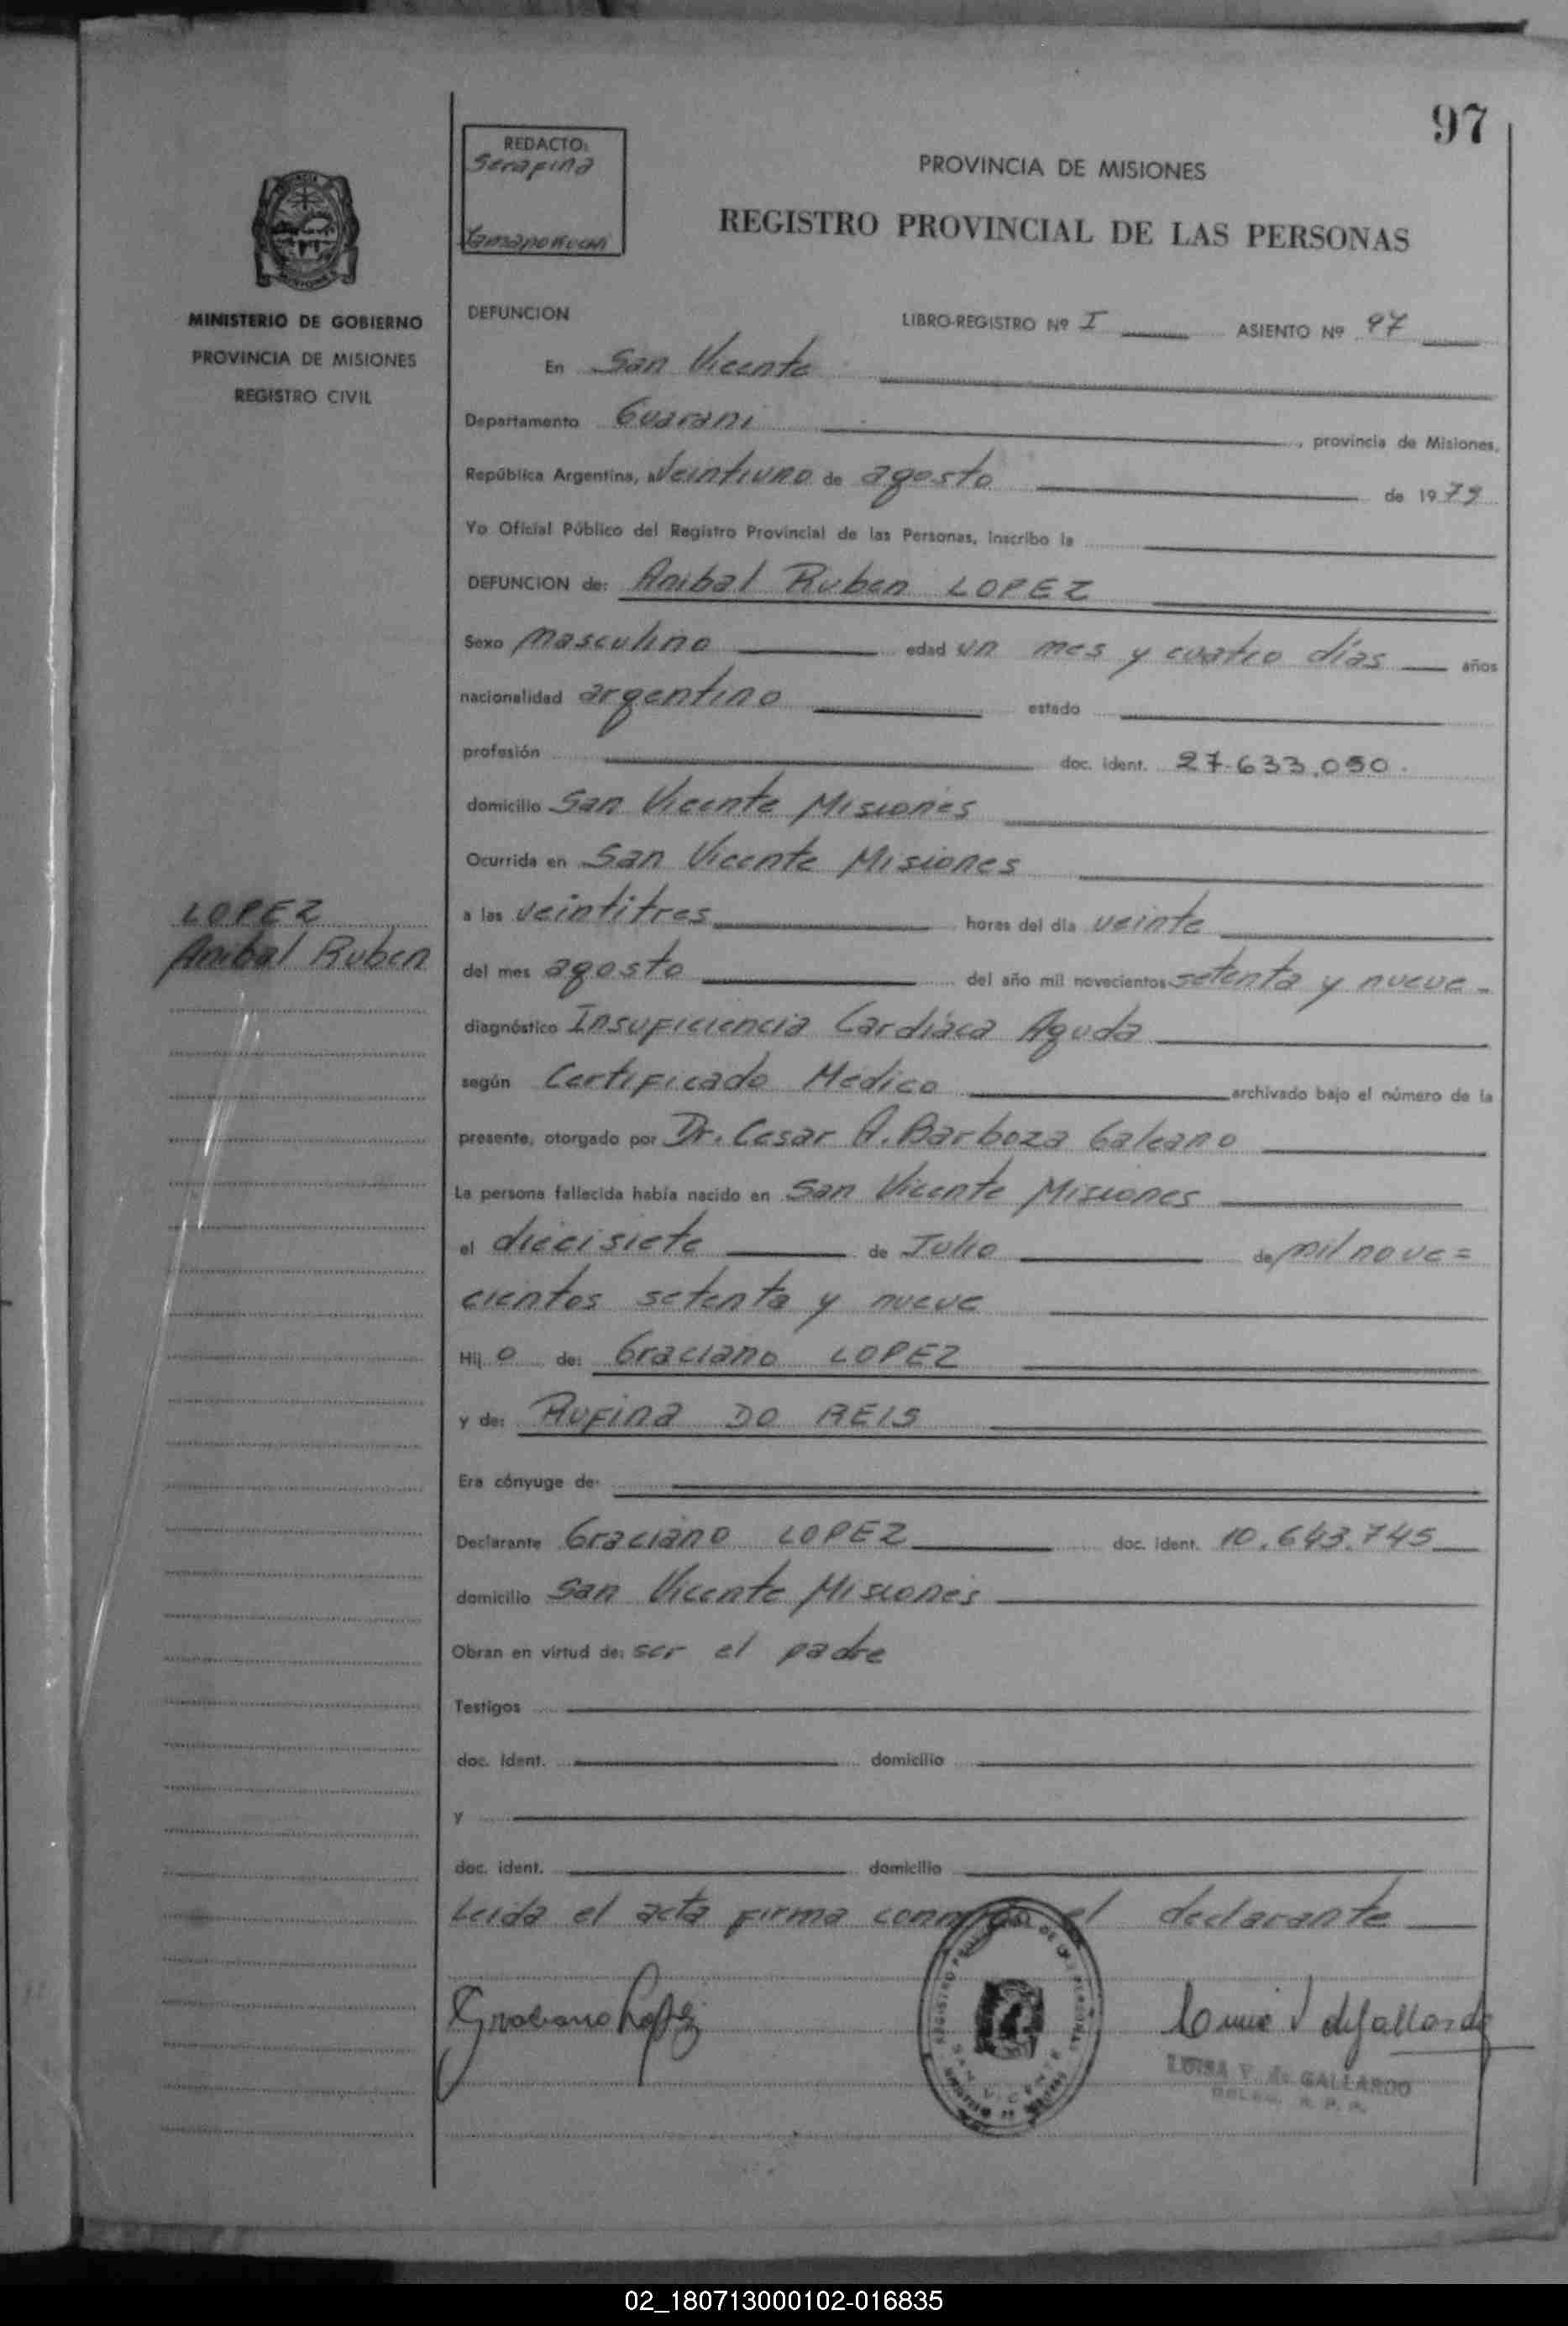 97
REDACTO:
Serafina
PROVINCIA DE MISIONES
REGISTRO PROVINCIAL DE LAS PERSONAS
MINISTERIO DE GOBIERNO
PROVINCIA DE MISIONES
REGISTRO CIVIL
DEFUNCION LIBRO-REGISTRO Nº I ASIENTO Nº 97
En San Vicente
Departamento Guarani, provincia de Misiones,
República Argentina, a Veintiuno de agosto de 1979
Yo Oficial Público del Registro Provincial de las Personas, inscribo la
DEFUNCION de: Anibal Ruben LOPEZ
Sexo masculino edad un mes y cuatro días años
nacionalidad argentino estado
profesión doc. ident. 27.633.050.
domicilio San Vicente Misiones
Ocurrida en San Vicente Misiones
LOPEZ
Anibal Ruben
a las veintitres horas del día veinte
del mes agosto del año mil novecientos setenta y nueve -
diagnóstico Insuficiencia Cardíaca Aguda
según Certificado Médico archivado bajo el número de la
presente, otorgado por Dr. Cesar A. Barboza Galeano
La persona fallecida había nacido en San Vicente Misiones
el diecisiete de Julio de mil nove=
cientos setenta y nueve
Hij o de: Graciano LOPEZ
y de: Rufina DO REIS
Era cónyuge de:
Declarante Graciano LOPEZ doc. ident. 10.643.745
domicilio San Vicente Misiones
Obran en virtud de: ser el padre
Testigos
doc. ident. domicilio
y
doc. ident. domicilio
Leida el acta firma conmigo el declarante
Graciano Lopez
LUISA V. de GALLARDO
02_180713000102-016835